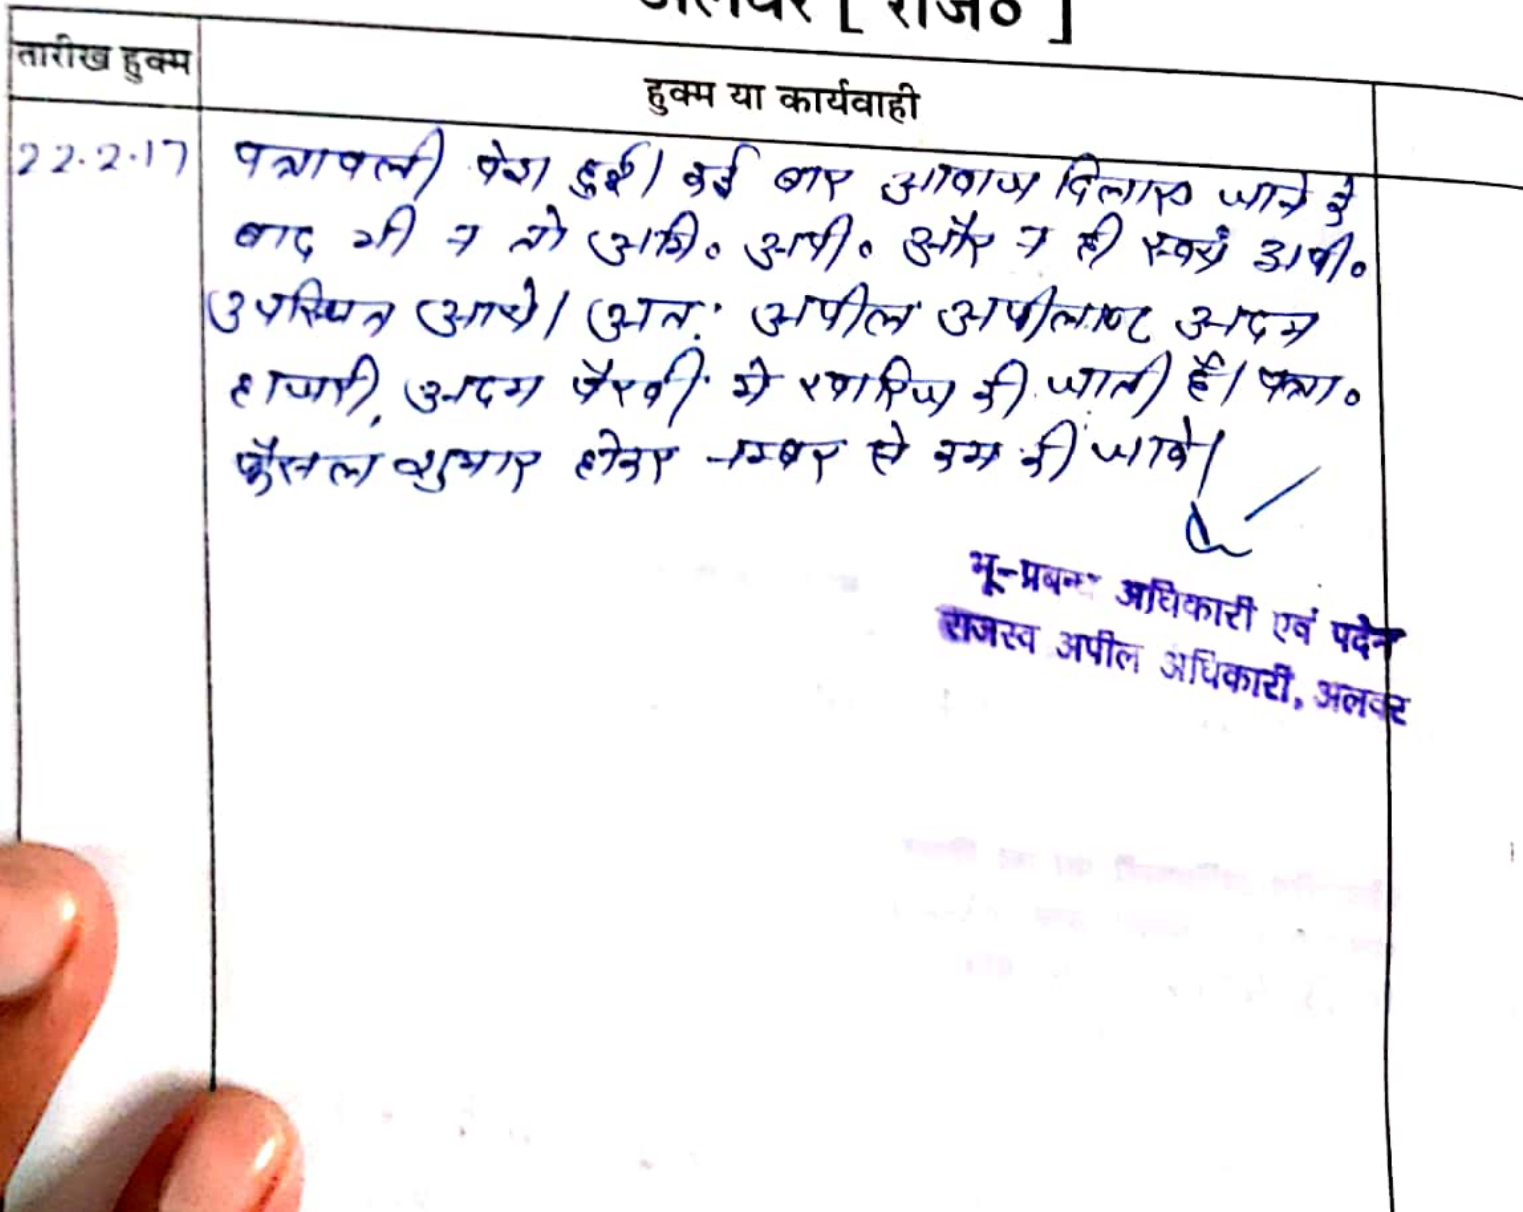 अलवर [ राज० ]
तारीख हुक्म
हुक्म या कार्यवाही
22.2.17
पत्रावली पेश हुई। कई बार आवाज दिलाए जाने के
बाद भी न तो अभि० अपी० और न ही स्वयं अपी०
उपस्थित आये। अतः अपील अपीलाण्ट अदम
हाजरी, अदम पैरवी में खारिज की जाती है। पत्रा०
फैसल शुमार होकर नम्बर से कम की जावे।
भू-प्रबन्ध अधिकारी एवं पदेन
राजस्व अपील अधिकारी, अलवर